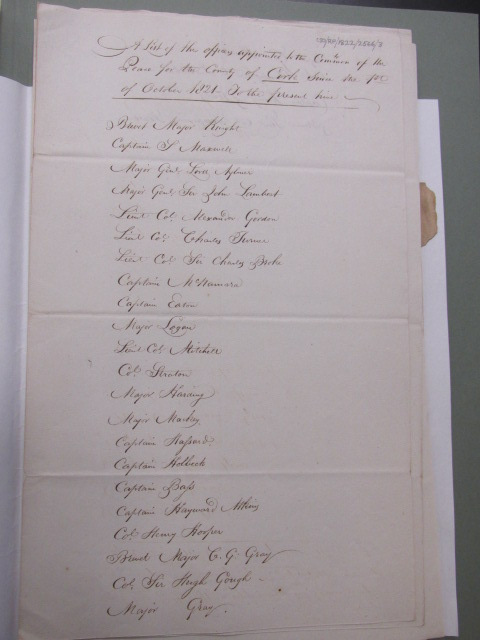 CSO/RP/1822/2566/3
A List of the officers appointed to the Comm.n of the
Peace for the County of Cork Since the 1st
of October 1821 To the present time
Brevet Major Knight
Captain S Maxwell
Major Gen.l Lord Aylmer
Major Gen.l Sir John Lambert
Lieut Col. Alexander Gordon
Lieut Col. Charles
Lieut Col. Sir Charles Broke
Captain McNamara
Captain Eaton
Major Logan
Lieut Col. Mitchell
Col. Straton
Major Harding
Major Mackay
Captain Hassard
Captain Holbech
Captain Bass
Captain Hayward Atkins
Col. Henry Hooper
Brevet Major C. G. Gray
Col. Sir Hugh Gough
Major Gray.